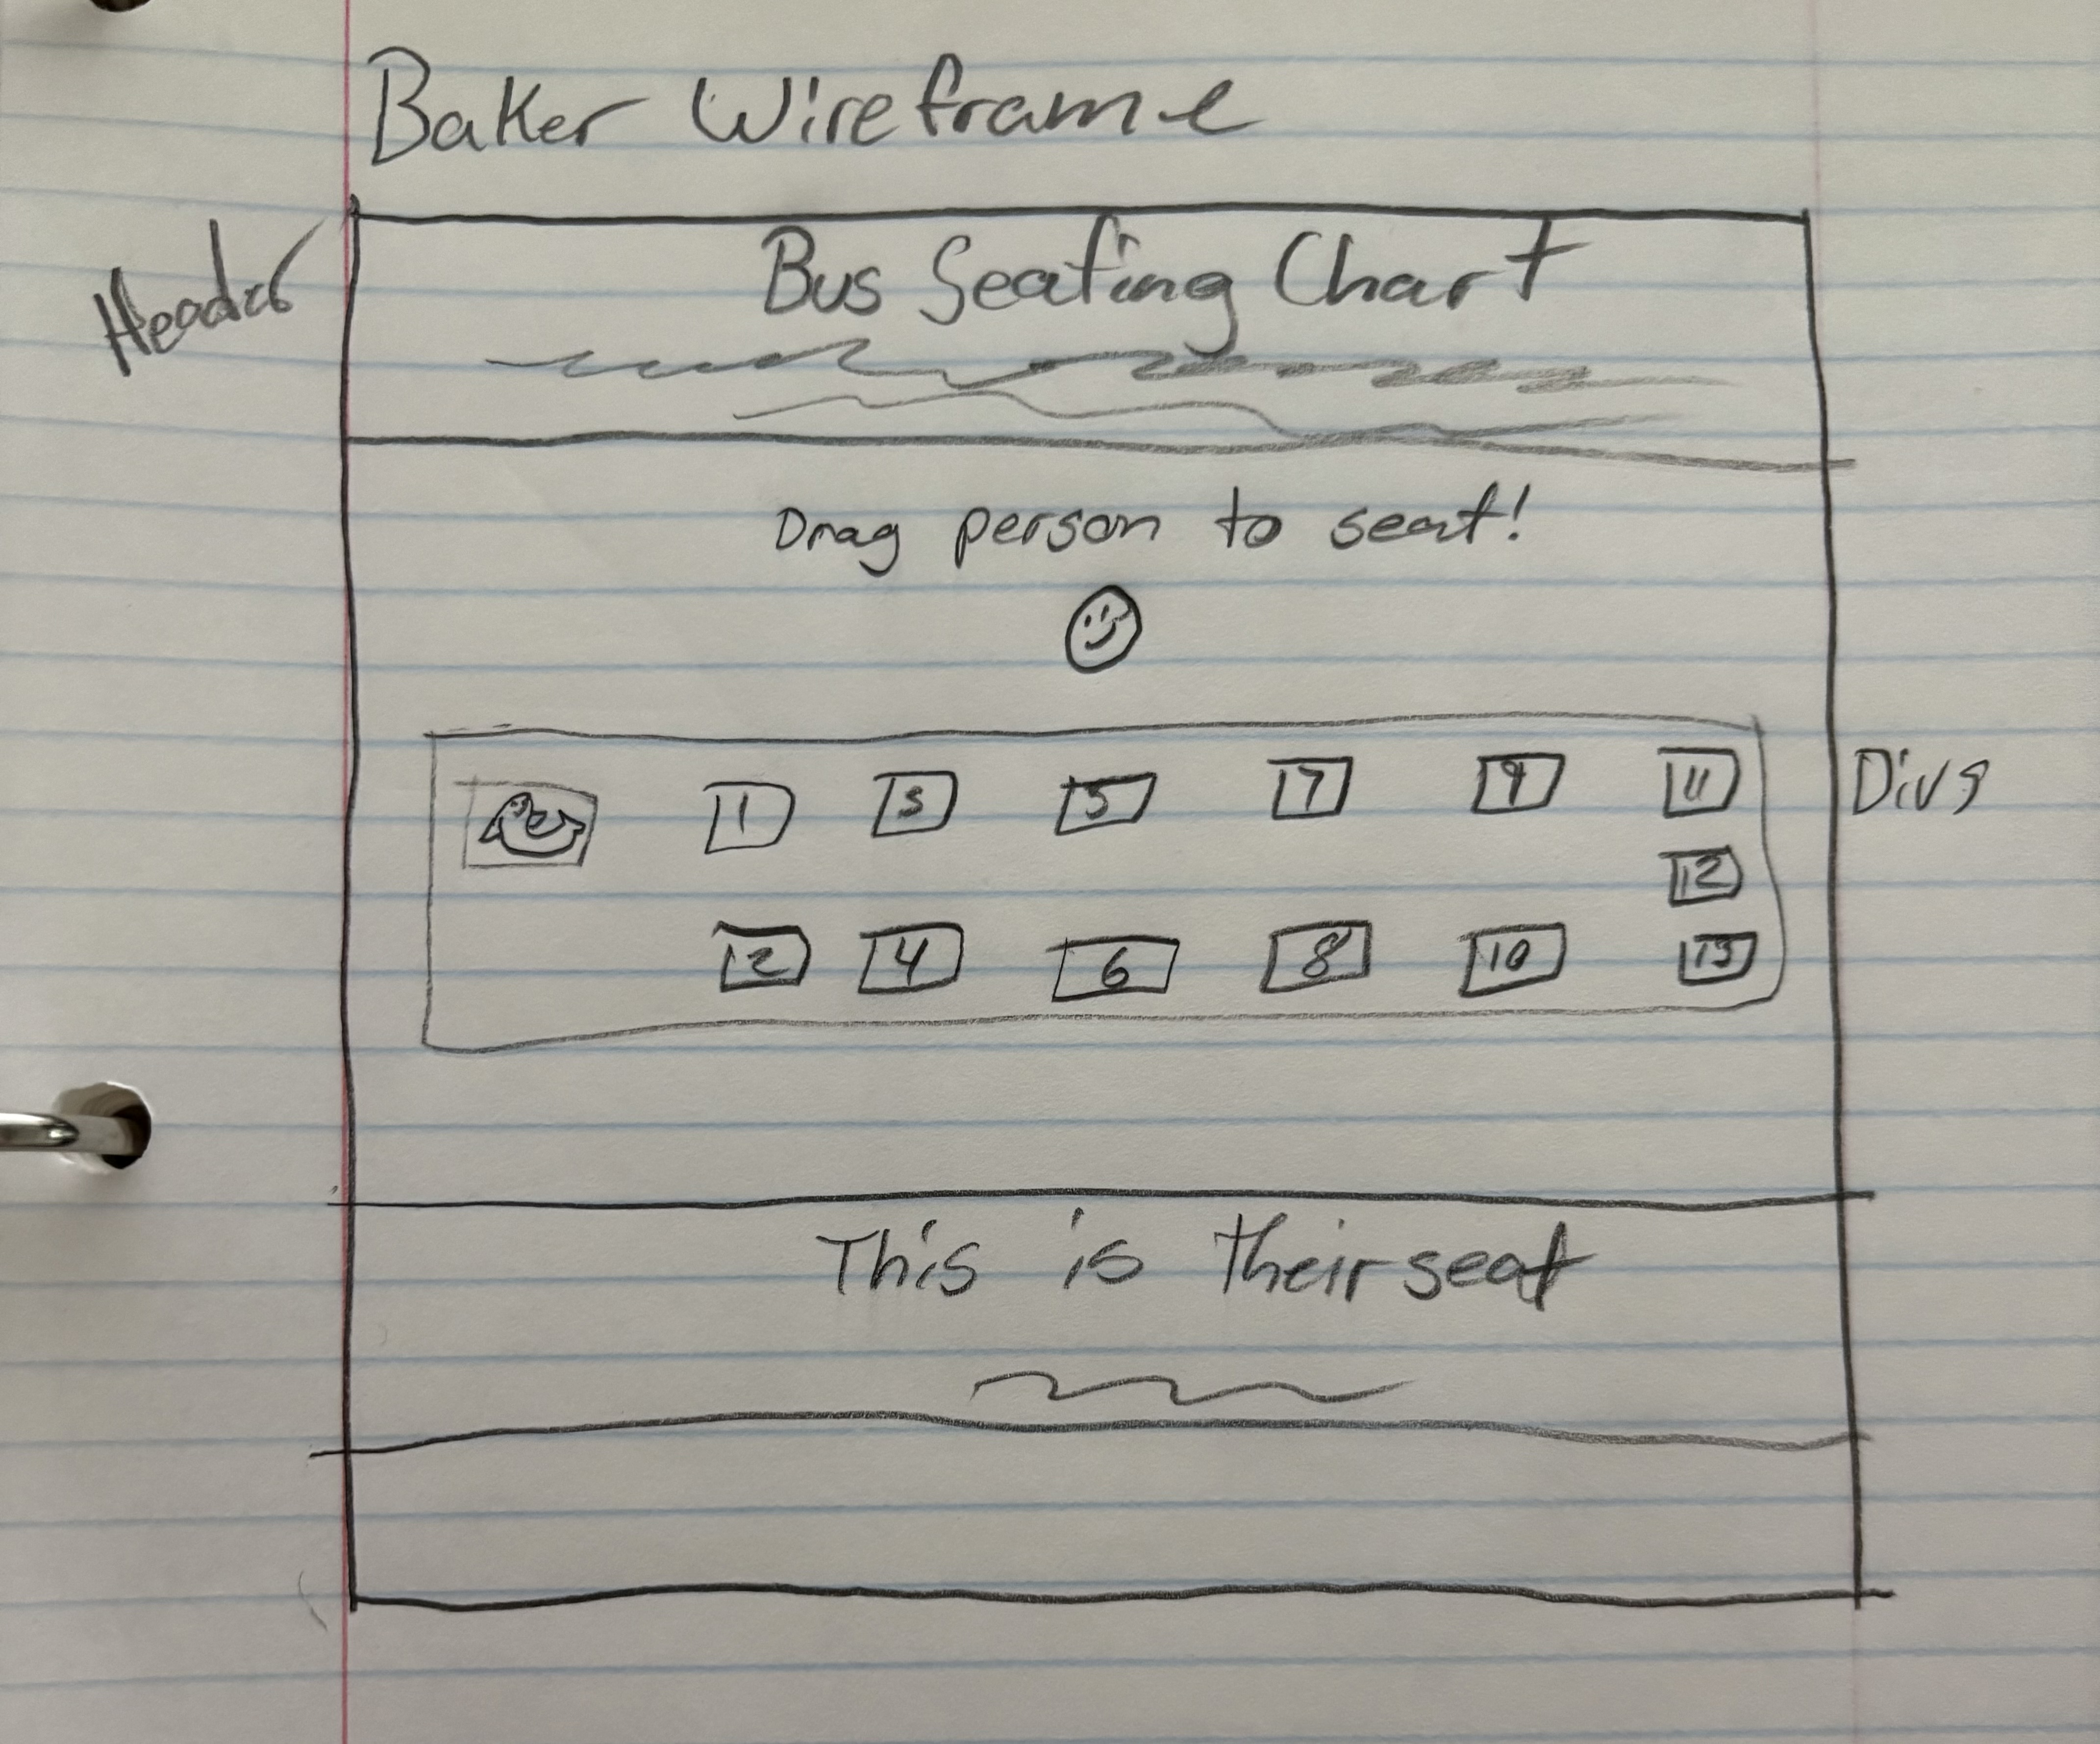 Baker Wireframe
Header
Bus Seating Chart
Drag person to seat!
1 3 5 7 9 11
Divs
12
2 4 6 8 10 13
This is their seat